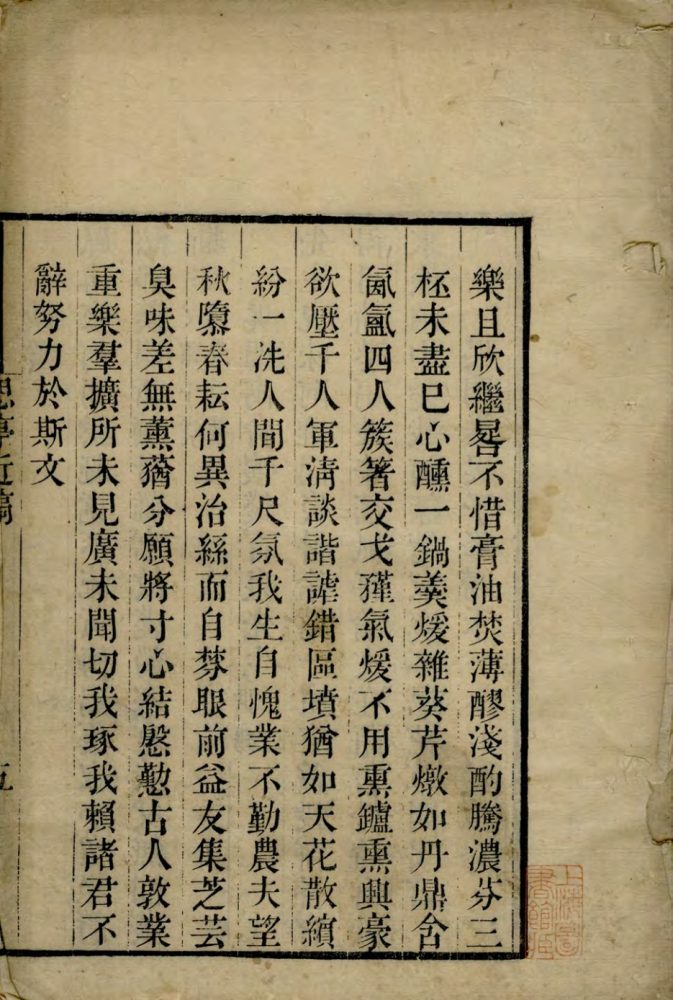 樂且欣繼晷不惜膏油焚薄醪淺酌騰濃芬三
杯未盡巳心醺一鍋羹煖雜葵芹燉如丹鼎含
氤氳四人簇箸交戈㺔氣煖不用熏鑪熏興豪
欲壓千人軍淸談諧謔錯區墳猶如天花散繽
紛一洗人間千尺氛我生自愧業不勤農夫望
秋隳春耘何異治絲而自棼眼前益友集芝芸
臭味差無薰蕕分願將寸心結慇懃古人敦業
重樂羣擴所未見廣未聞切我琢我賴諸君不
辭努力於斯文
思亭近稿
五
上海圖書館藏